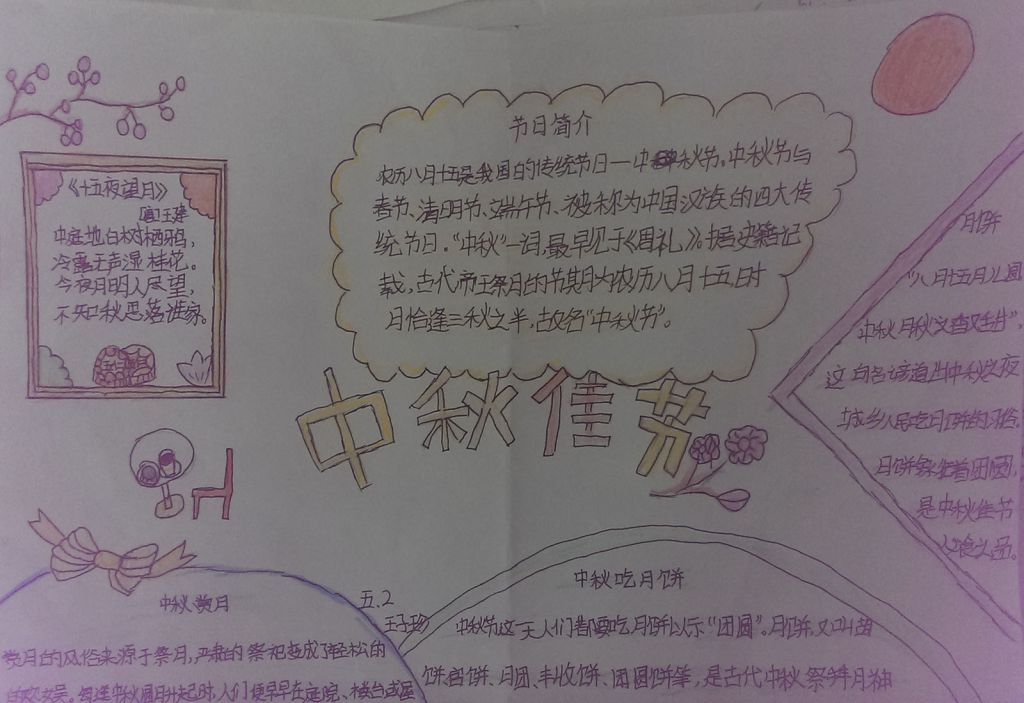 《十五夜望月》
[唐]王建
中庭地白树栖鸦，
冷露无声湿桂花。
今夜月明人尽望，
不知秋思落谁家。
节日简介
农历八月十五是我国的传统节日—中秋节。中秋节与
春节、清明节、端午节、被称为中国汉族的四大传
统节日。“中秋”一词，最早见于《周礼》。据史籍记
载，古代帝王祭月的节期为农历八月十五，时
月恰逢三秋之半，故名“中秋节”。
中秋佳节
月饼
“八月十五月儿圆
中秋月饼又香又甜”，
这句名谚道出中秋之夜
城乡人民吃月饼的习俗。
月饼象征着团圆，
是中秋佳节
之品。
中秋赏月
赏月的风俗来源于祭月，严肃的祭祀变成了轻松的
欢娱。每逢中秋圆月升起时，人们便早早在庭院、楼台或屋
五.2
中秋吃月饼
中秋节这一天人们都要吃月饼以示“团圆”。月饼，又叫胡
饼、宫饼、月团、丰收饼、团圆饼等，是古代中秋祭拜月神